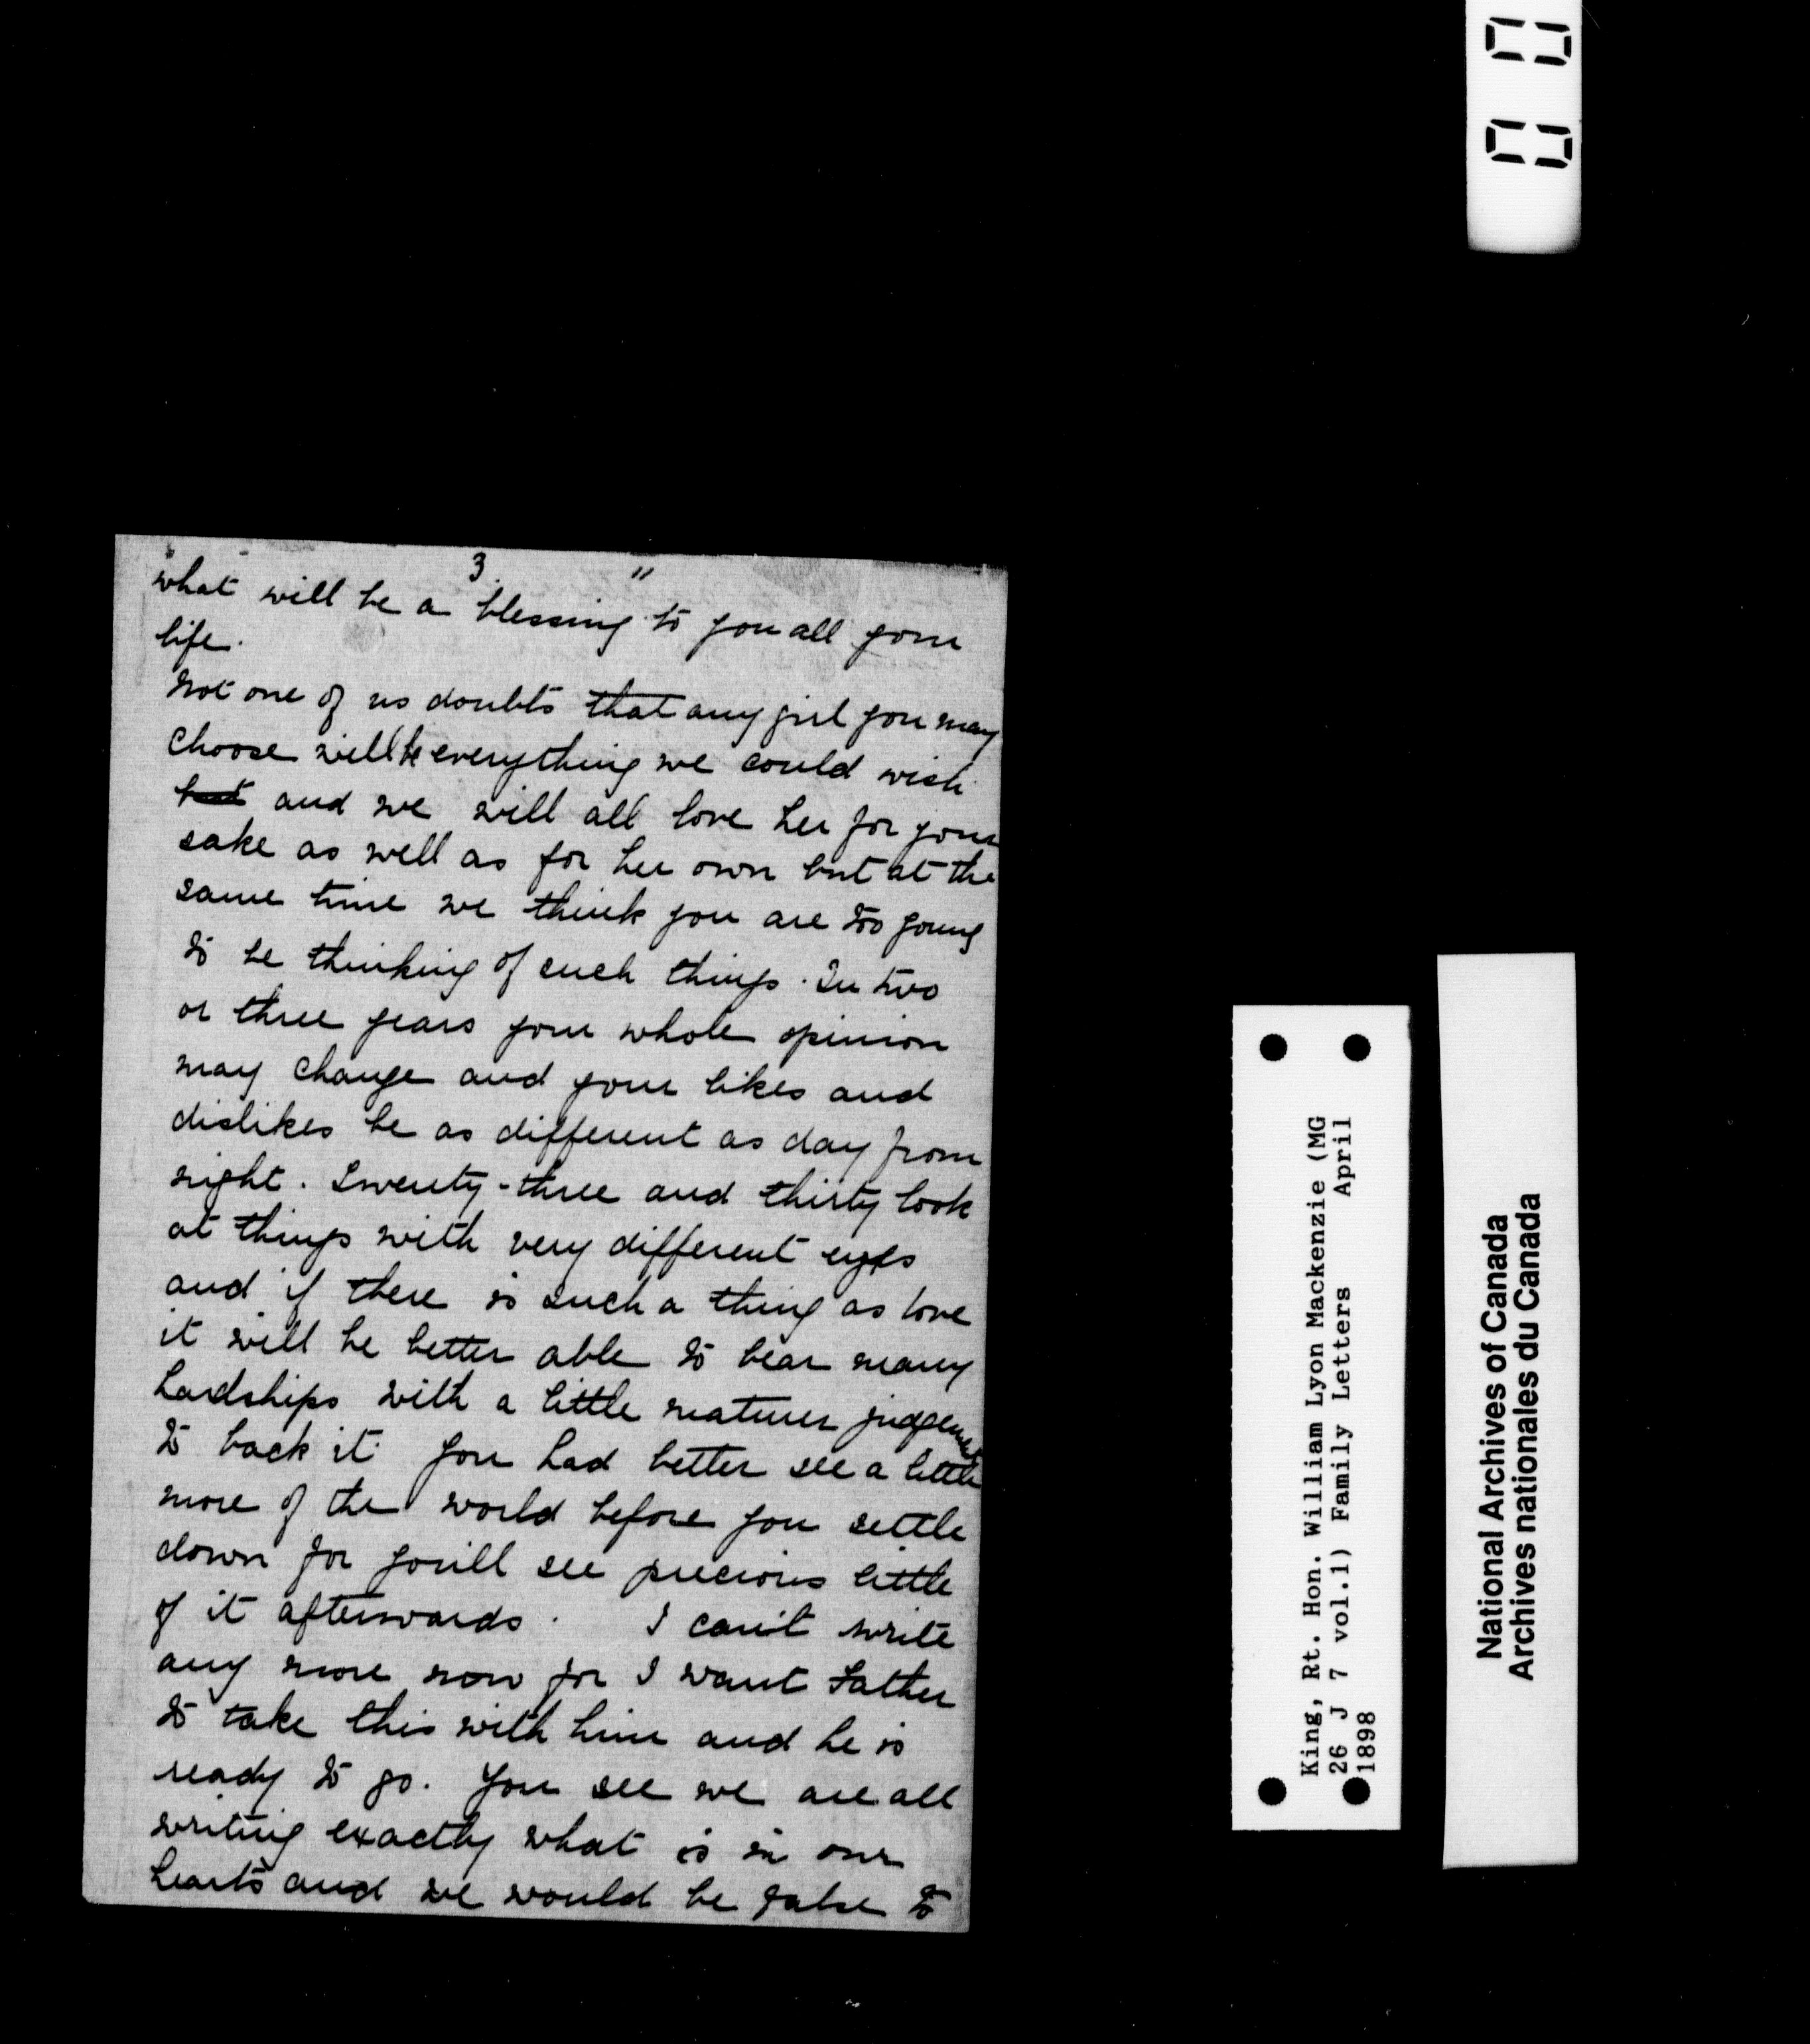 3.
"
what will be a blessing to you all your
life.
Not one of us doubts that any girl you may
choose will be everything we could wish
but and we will all love her for your
sake as well as for her own but at the
same time we think you are too young
to be thinking of such things. In two
or three years your whole opinion
may change and your likes and
dislikes be as different as day from
night. Twenty-three and thirty look
at things with very different eyes
and if there is such a thing as love
it will be better able to bear many
hardships with a little maturer judgement
to back it. You had better see a little
more of the world before you settle
down for you'll see precious little
of it afterwards. I can't write
any more now for I want Father
to take this with him and he is
ready to go. You see we are all
writing exactly what is in our
hearts and we would be false to
King, Rt. Hon. William Lyon Mackenzie (MG
26 J 7 vol.1) Family Letters April
1898
National Archives of Canada
Archives nationales du Canada